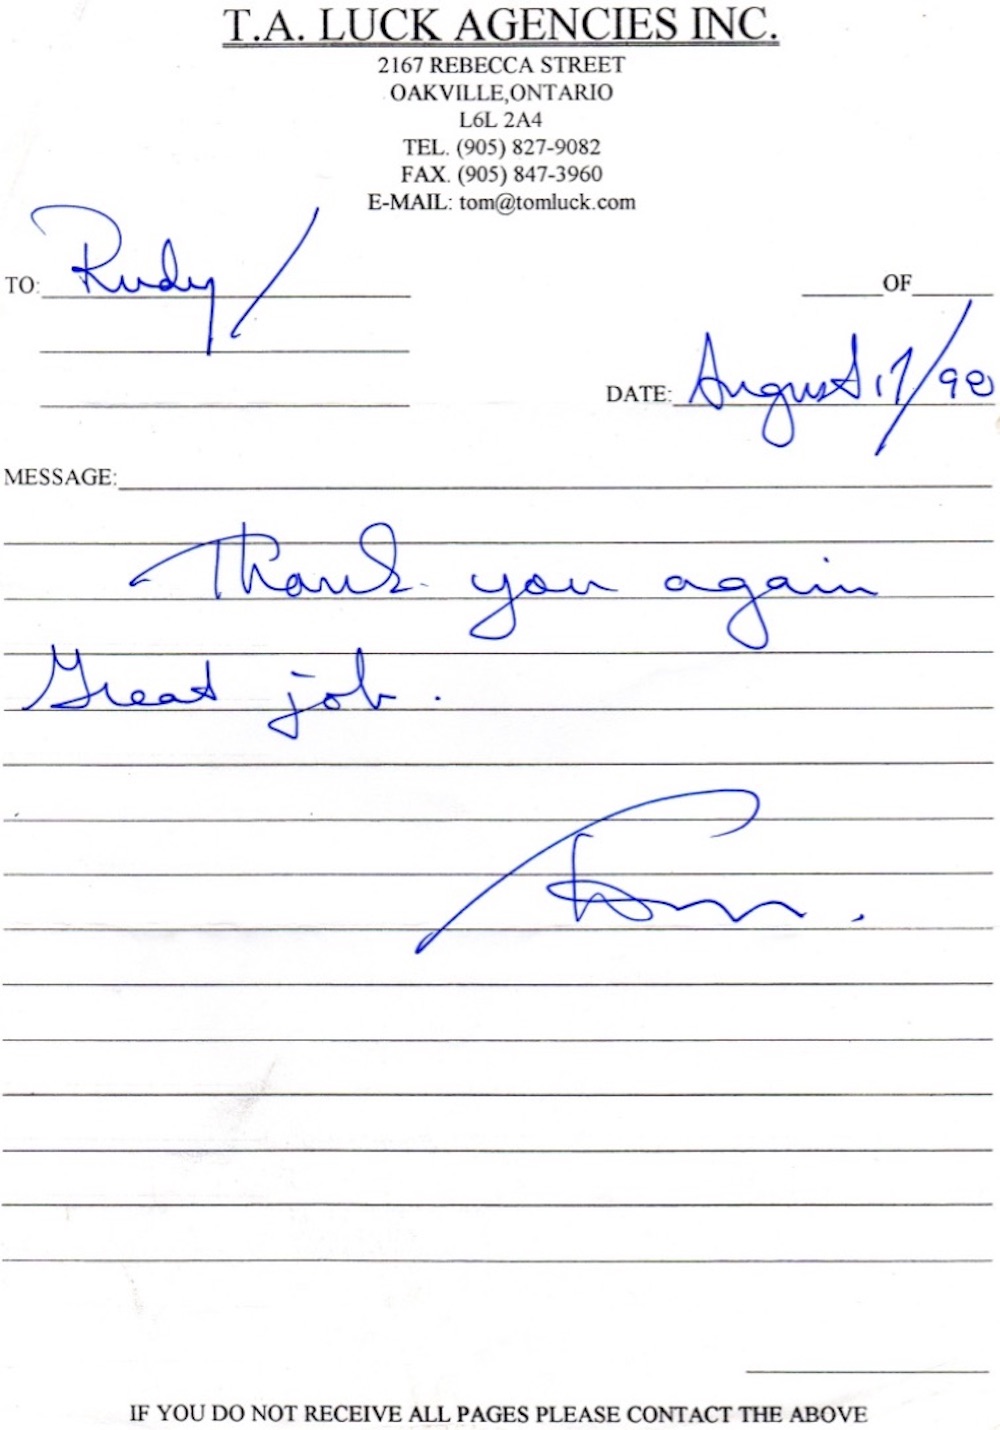 T.A. LUCK AGENCIES INC.
2167 REBECCA STREET
OAKVILLE,ONTARIO
L6L 2A4
TEL. (905) 827-9082
FAX. (905) 847-3960
E-MAIL: tom@tomluck.com
TO: Rudy/
OF
DATE: August 17/98
MESSAGE:
Thank you again
Great job.
Tom.
IF YOU DO NOT RECEIVE ALL PAGES PLEASE CONTACT THE ABOVE